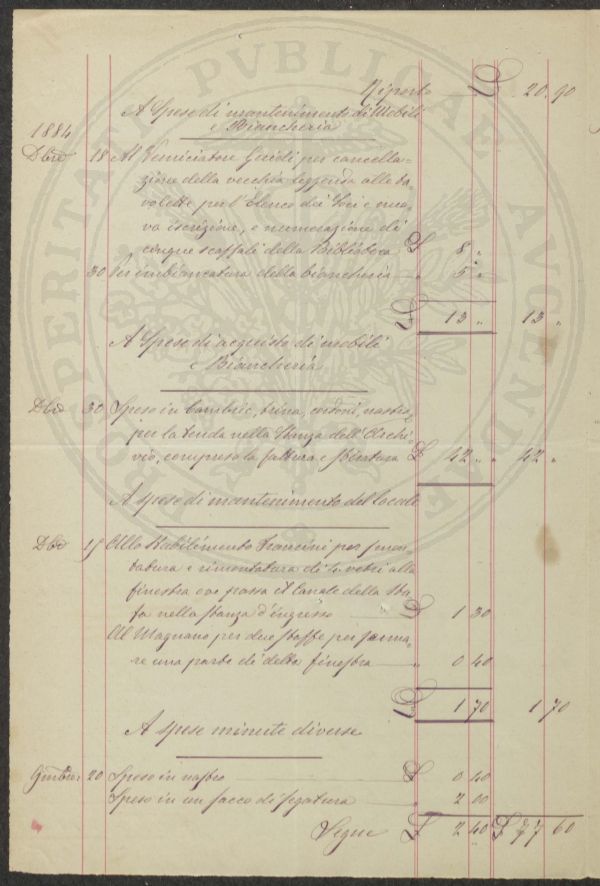 Riporto £ 20. 90
A Spese di mantenimento di Mobili
e Biancheria
1884
Dbre 18 Al Verniciatore per cancella-
zione della vecchia leggenda alle ta-
volette per l'Elenco dei Soci e nuo-
va iscrizione, e numerazione di
cinque scaffali della Biblioteca £ 8 "
30 Per imbiancatura della biancheria " 5 "
£ 13 " 13 "
A Spese di acquisto di mobili
e Biancheria
Dbre 30 Spese in Cambric, trina, cordoni, nastro,
per la tenda nella Stanza dell'Archi-
vio, compreso la fattura e £ 42 " " 42 "
A spese di mantenimento del Locale
Dbre 15 Allo Stabilimento Francini per
e rimontatura di vetri alla
finestra ove passa il Canale della Stu-
fa nella Stanza d'ingresso £ 1 30
Al Magnano per due Staffe per ferma-
re una parte di detta finestra " 0 40
£ 1 70 1 70
A spese minute diverse
20 Spese in nastro £ 0 40
Spese in un sacco di segatura " 2 00
Segue £ 2 40 £ 77 60
PROSPERITATI PVBLICAE AVGENDAE